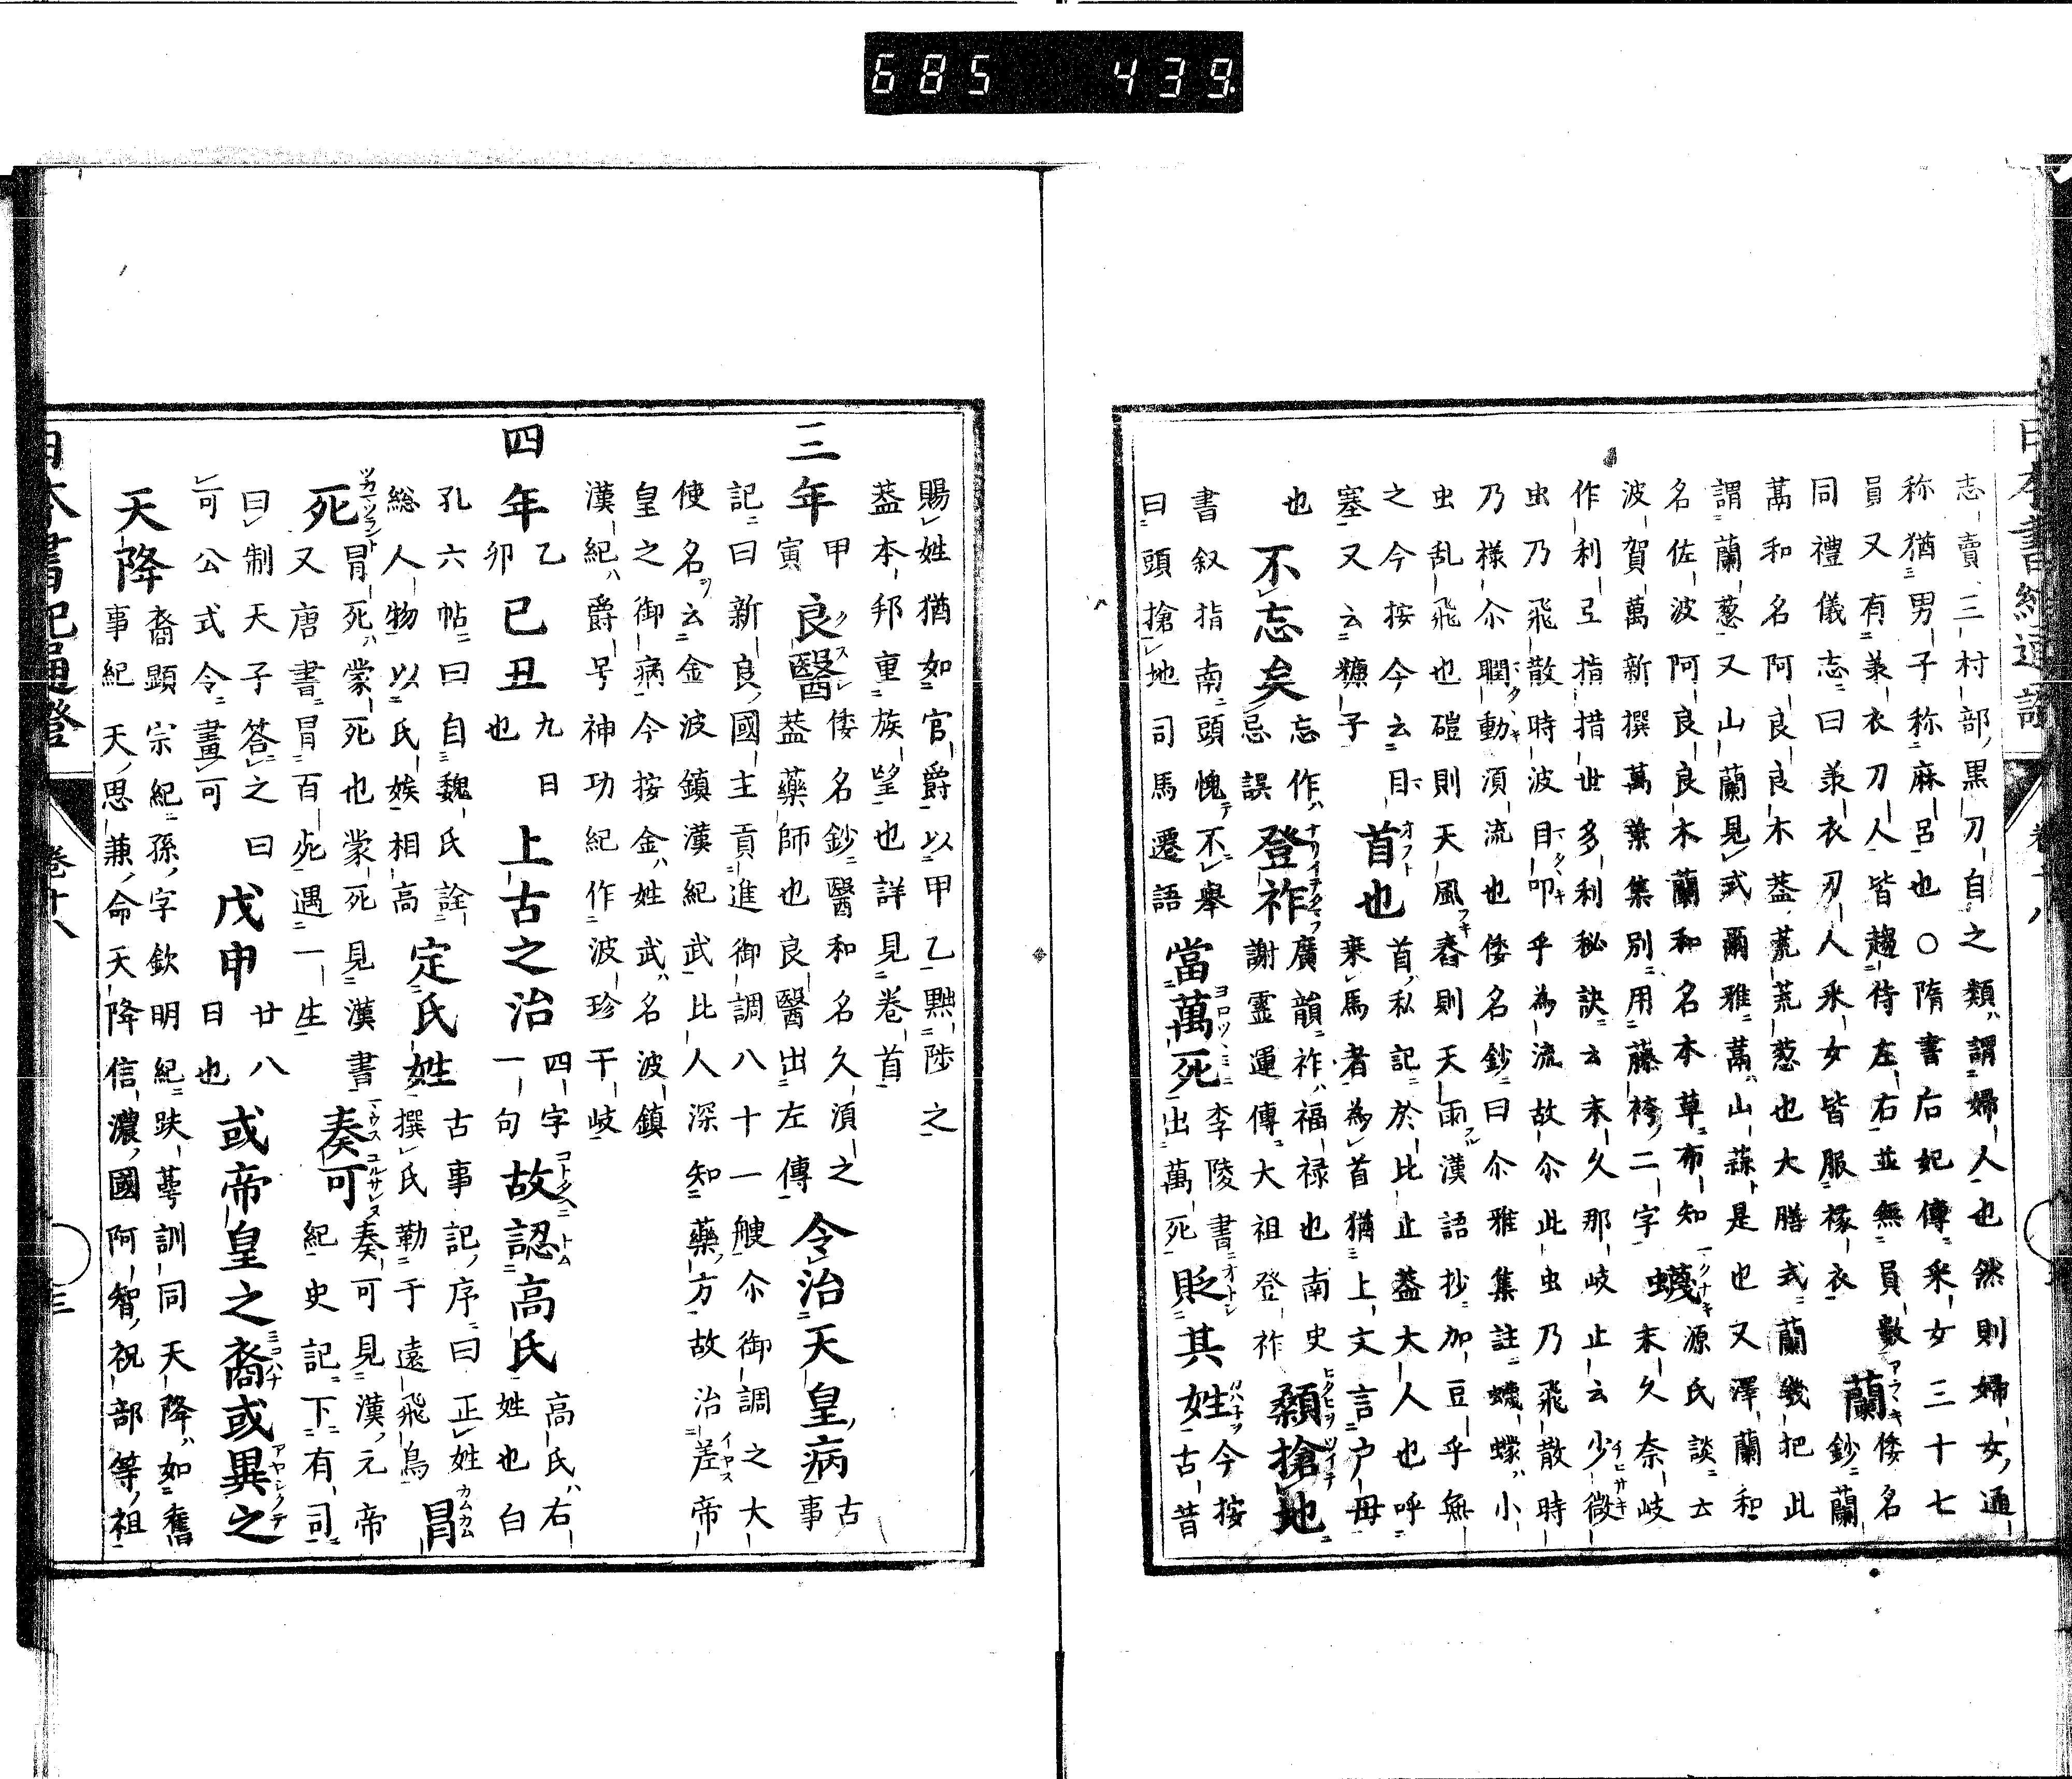 685 439
志賣三村部黒刀自之類謂婦人也然則婦女通
称猶男子称麻呂也○隋書后妃傳釆女三十七
員又有兼衣刀人皆趨侍左右並無員數蘭倭名
同禮儀志曰兼衣刃人釆女皆服褖衣鈔蘭
萵和名阿良良木葢荒荒葱也大膳式蘭幾把此
謂蘭葱又山蘭見式爾雅萵山蒜是也又澤蘭和
名佐波阿良良木蘭和名本草布知蠛源氏談云
波賀萬新撰萬葉集別用藤袴二字末久奈岐
作利弖指措世多利秘訣云末久那岐止云少微
虫乃飛散時波目叩乎為流故尒此虫乃飛散時
乃樣尒瞤動須流也倭名鈔曰尒雅集註蠛蠓小
虫乱飛也磑則天風舂則天雨漢語抄加豆乎無
之今按今云目首也首私記於比止葢大人也呼
塞又云糠子乗馬者為首猶上文言戸母
也不忘矣忘作忌誤登祚廣韻祚福禄也南史謝靈運傳大祖登祚顙搶地
書叙指南頭愧不舉當萬死李陵書貶其姓今按
曰頭搶地司馬遷語出萬死古昔
賜姓猶如官爵以甲乙黜陟之
葢本邦重族望也詳見卷首
三年甲寅良醫倭名鈔醫和名久須之葢藥師也良醫出左傳令治天皇病古事
記曰新良國主貢進御調八十一艘尒御調之大
使名云金波鎮漢紀武比人深知藥方故治差帝
皇之御病今按金姓武名波鎮
漢紀爵号神功紀作波珍干岐
四年乙卯已丑九日也上古之治四字一句故認高氏高氏右姓也白
孔六帖曰自魏氏詮定氏姓古事記序曰正姓
総人物以氏族相高撰氏勒于遠飛鳥冒
死冒死蒙死也蒙死見漢書奏可奏可見漢元帝
又唐書冒百死遇一生紀史記下有司
曰制天子答之曰戊申廿八日也或帝皇之裔或異之
可公式令畫可
天降裔顕宗紀孫字欽明紀趺萼訓同天降如舊
事紀天思兼命天降信濃國阿智祝部等祖
日本書紀通證
卷廿八